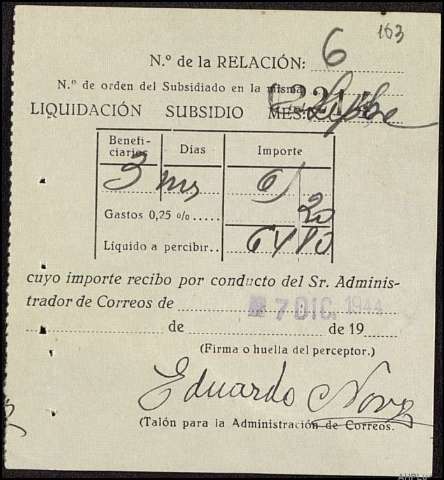 163
N.º de la RELACIÓN: 6
N.º de orden del Subsidiado en la misma
LIQUIDACIÓN SUBSIDIO MES:
Benefi-
ciarios Días Importe
3 ms
20
Gastos 0,25 %.....
Líquido a percibir..
cuyo importe recibo por conducto del Sr. Adminis-
trador de Correos de
7 DIC. 1944
de de 19
(Firma o huella del perceptor.)
Eduardo
(Talón para la Administración de Correos.